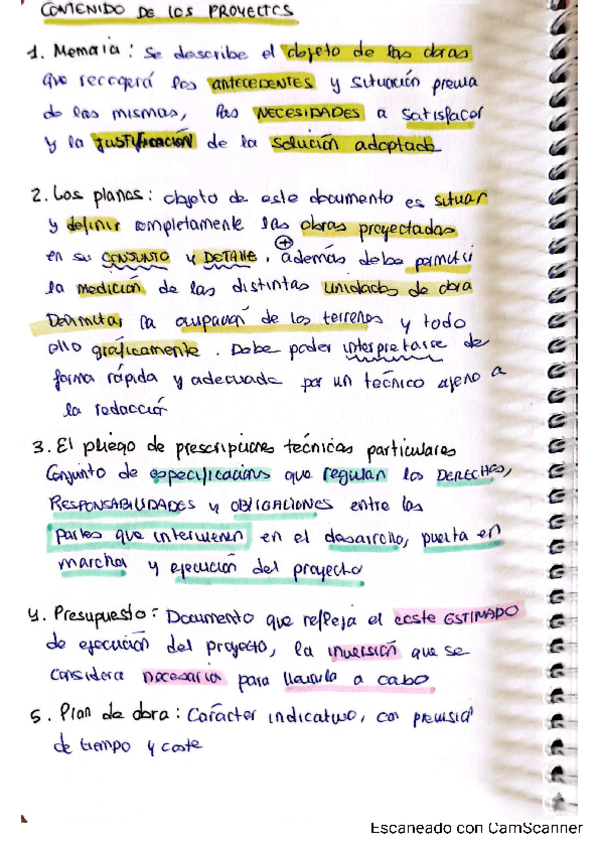 CONTENIDO DE LOS PROYECTOS
1. Memoria: Se describe el objeto de las obras
que recogerá los ANTECEDENTES y situación previa
de las mismas, las NECESIDADES a satisfacer
y la JUSTIFICACIÓN de la solución adoptada
2. Los planos: objeto de este documento es situar
y definir completamente las obras proyectadas
en su CONJUNTO y DETALLE, además debe permitir
la MEDICIÓN de las distintas unidades de obra
Delimitar la ocupación de los terrenos y todo
ello gráficamente. Debe poder interpretarse de
forma rápida y adecuada por un técnico ajeno a
la redacción
3. El pliego de prescripciones técnicas particulares
Conjunto de especificacions que regulan los DERECHOS,
RESPONSABILIDADES y OBLIGACIONES entre las
partes que intervienen en el desarrollo, puesta en
marcha y ejecución del proyecto
4. Presupuesto: Documento que refleja el coste ESTIMADO
de ejecución del proyecto, la inversión que se
considera necesaria para llevarla a cabo
5. Plan de obra: Carácter indicativo, con previsión
de tiempo y coste
Escaneado con CamScanner